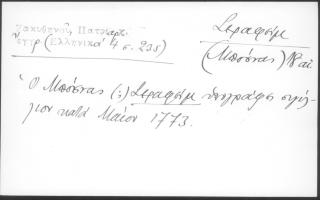 Ζακυθηνοῦ, Πατριαρχ.
ἔγγρ (Ἑλληνικά 4 σ. 205)
Σεραφείμ
(Μπόσνας) 18 αἰ.
Ὁ Μπόσνας (;) Σεραφείμ ὑπογράφει σιγίλ-
λιον κατά Μάϊον 1773.